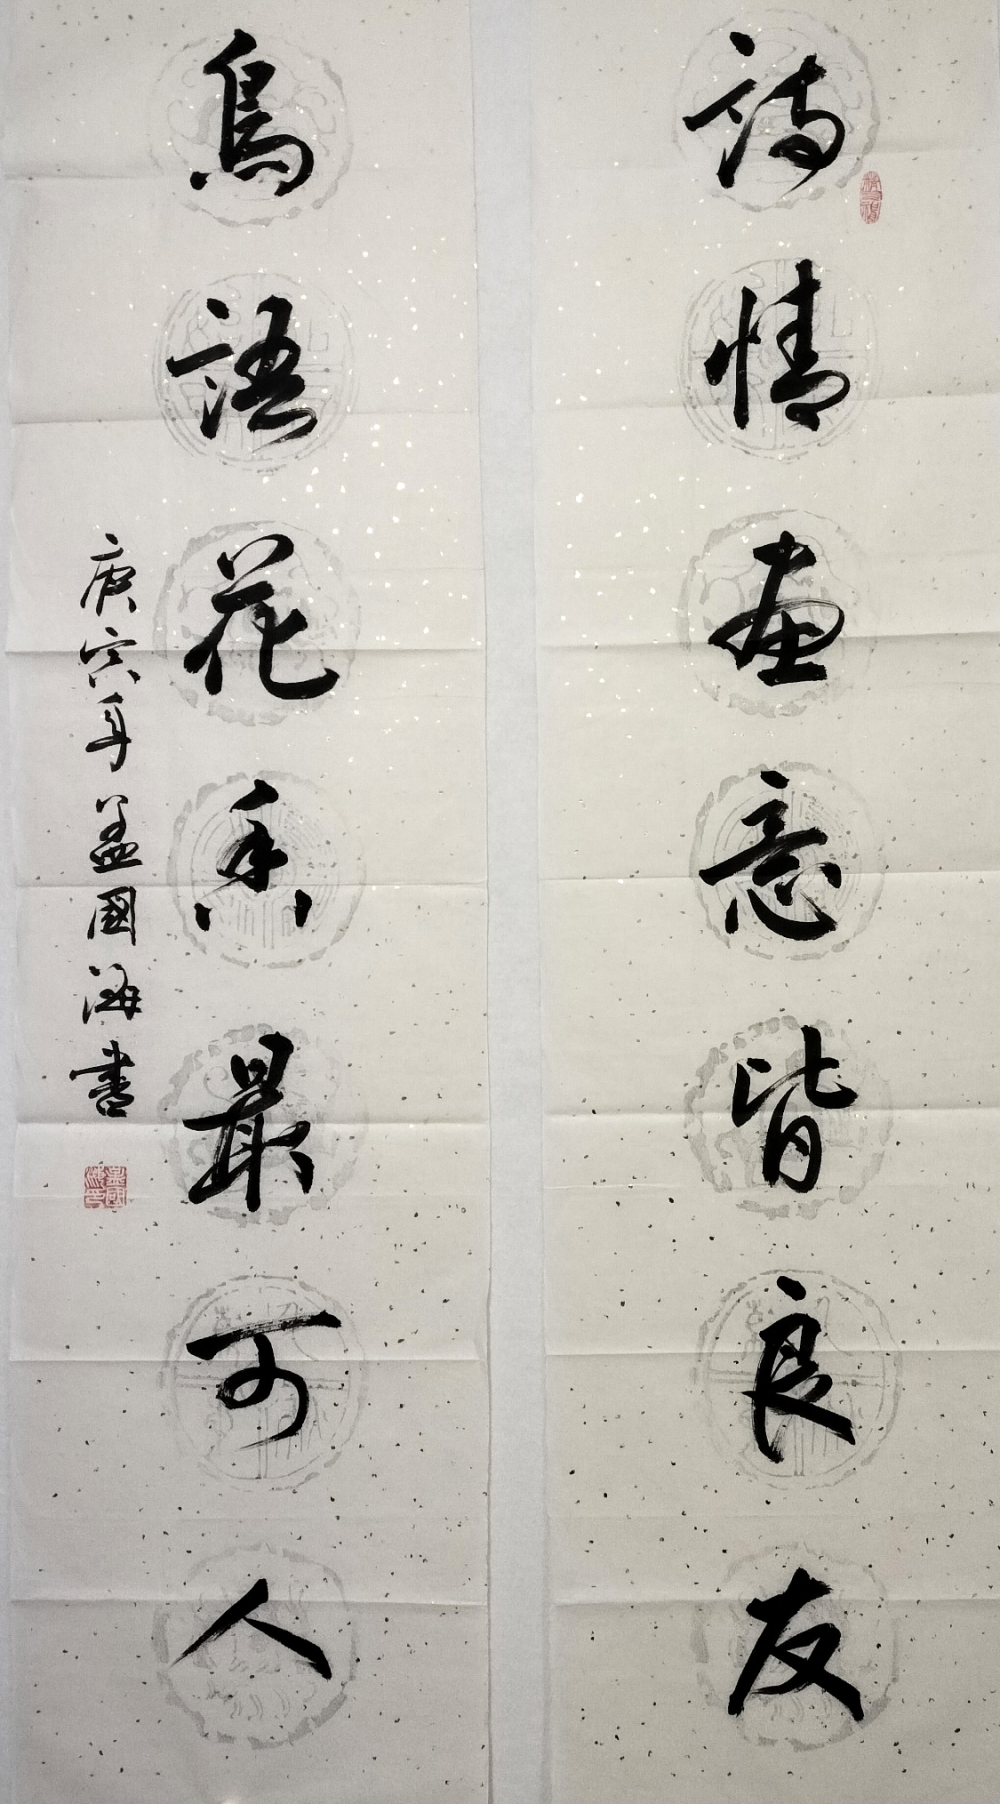 詩情畫意皆良友
鳥語花香最可人
庚寅年孟國海書